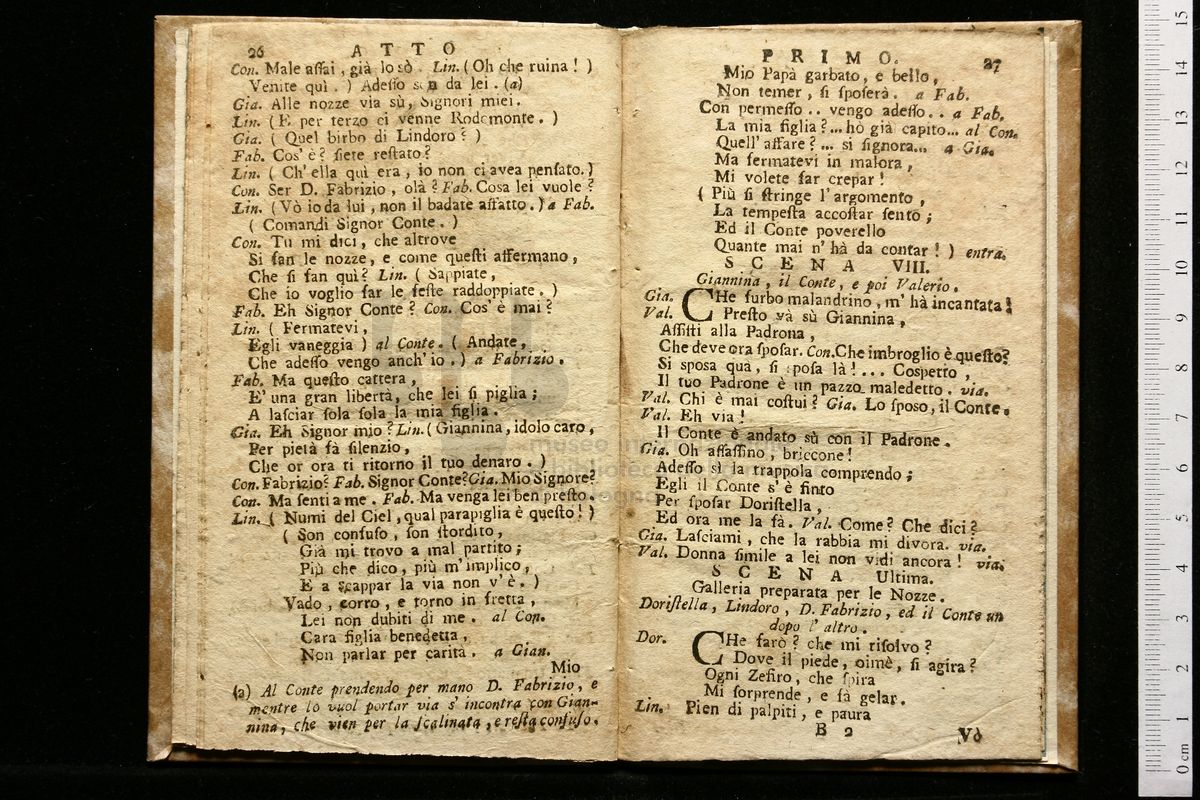 26 ATTO
Con. Male assai, già lo sò. Lin. (Oh che ruina! )
Venite quì. ) Adesso son da lei. (a)
Gia. Alle nozze via sù, Signori miei.
Lin. (E per terzo ci venne Rodomonte. )
Gia. ( Quel birbo di Lindoro? )
Fab. Cos' è? siete restato?
Lin. ( Ch' ella quì era, io non ci avea pensato.)
Con. Ser D. Fabrizio, olà? Fab. Cosa lei vuole?
Lin. (Vò io da lui, non il badate affatto. ) a Fab.
( Comandi Signor Conte. )
Con. Tu mi dici, che altrove
Si fan le nozze, e come questi affermano,
Che si fan quì? Lin. ( Sappiate,
Che io voglio far le feste raddoppiate. )
Fab. Eh Signor Conte? Con. Cos' è mai?
Lin. ( Fermatevi,
Egli vaneggia ) al Conte. ( Andate,
Che adesso vengo anch' io. ) a Fabrizio.
Fab. Ma questo cattera,
E' una gran libertà, che lei si piglia;
A lasciar sola sola la mia figlia.
Gia. Eh Signor mio? Lin. (Giannina, idolo caro,
Per pietà fà silenzio,
Che or ora ti ritorno il tuo denaro. )
Con. Fabrizio? Fab. Signor Conte? Gia. Mio Signore?
Con. Ma senti a me. Fab. Ma venga lei ben presto.
Lin. ( Numi del Ciel, qual parapiglia è questo! )
( Son confuso, son stordito,
Già mi trovo a mal partito;
Più che dico, più m'implico,
E a scappar la via non v'è. )
Vado, corro, e torno in fretta,
Lei non dubiti di me. al Con.
Cara figlia benedetta,
Non parlar per carità. a Gian.
Mio
(a) Al Conte prendendo per mano D. Fabrizio, e
mentre lo vuol portar via s' incontra con Gian-
nina, che vien per la scalinata, e resta confuso.
PRIMO. 27
Mio Papà garbato, e bello,
Non temer, si sposerà. a Fab.
Con permesso .. vengo adesso .. a Fab.
La mia figlia?... hò già capito... al Con.
Quell' affare? ... si signora... a Gia.
Ma fermatevi in malora,
Mi volete far crepar!
( Più si stringe l'argomento,
La tempesta accostar sento;
Ed il Conte poverello
Quante mai n' hà da contar! ) entra.
SCENA VIII.
Giannina, il Conte, e poi Valerio.
Gia. CHe furbo malandrino, m' hà incantata!
Val. Presto và sù Giannina,
Assisti alla Padrona,
Che deve ora sposar. Con. Che imbroglio è questo?
Si sposa quà, si sposa là! ... Cospetto,
Il tuo Padrone è un pazzo maledetto. via.
Val. Chi è mai costui? Gia. Lo sposo, il Conte.
Val. Eh via!
Il Conte è andato sù con il Padrone.
Gia. Oh assassino, briccone!
Adesso sì la trappola comprendo;
Egli il Conte s' è finto
Per sposar Doristella,
Ed ora me la fà. Val. Come? Che dici?
Gia. Lasciami, che la rabbia mi divora. via.
Val. Donna simile a lei non vidi ancora! via.
SCENA Ultima.
Galleria preparata per le Nozze.
Doristella, Lindoro, D. Fabrizio, ed il Conte un
dopo l' altro.
Dor. CHe farò? che mi risolvo?
Dove il piede, oimè, si agira?
Ogni Zefiro, che spira
Mi sorprende, e fà gelar.
Lin. Pien di palpiti, e paura
B 2 Vò